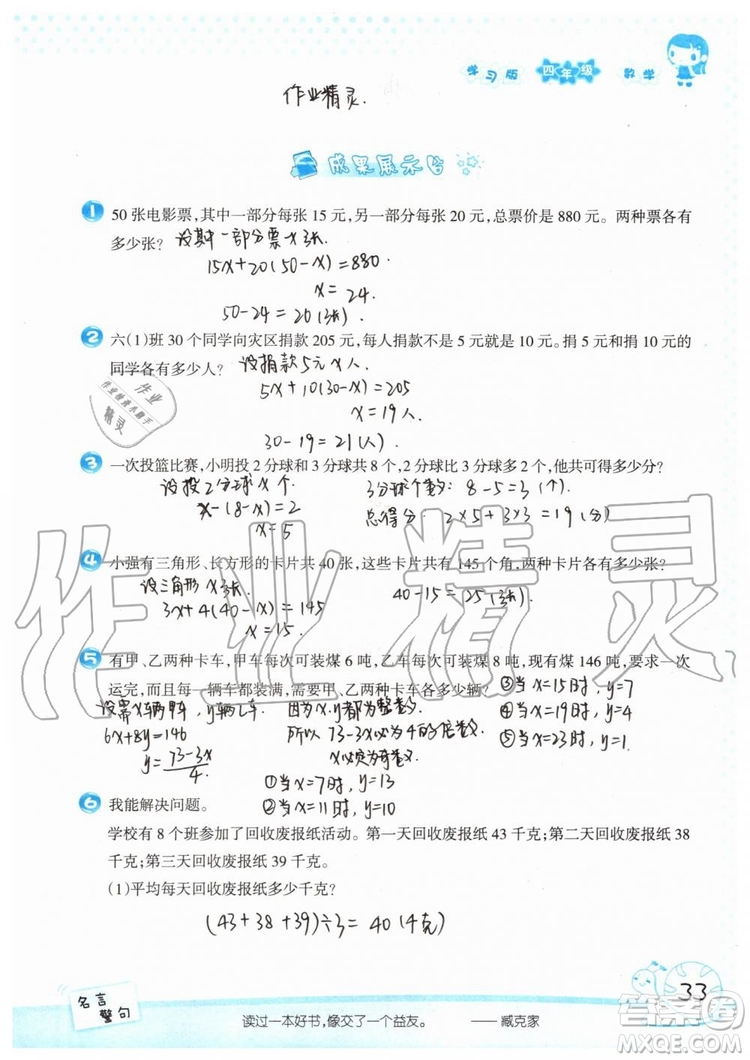 学习版 四年级 数学
作业精灵.
成果展示台
1 50 张电影票，其中一部分每张 15 元，另一部分每张 20 元，总票价是 880 元。两种票各有
多少张？ 设其中一部分票x张
15x+20(50-x)=880
x=24.
50-24=20(张)
2 六(1)班 30 个同学向灾区捐款 205 元，每人捐款不是 5 元就是 10 元。捐 5 元和捐 10 元的
同学各有多少人？ 设捐款5元x人.
5x+10(30-x)=205
x=19人.
30-19=21(人)
作业
作业精灵小助手
精灵
3 一次投篮比赛，小明投 2 分球和 3 分球共 8 个，2 分球比 3 分球多 2 个，他共可得多少分？
设投2分球x个. 3分球个数：8-5=3(个)
x-(8-x)=2 总得分：2×5+3×3=19(分)
x=5
4 小强有三角形、长方形的卡片共 40 张，这些卡片共有 145 个角，两种卡片各有多少张？
设三角形x张 40-15=25(张)
3x+4(40-x)=145
x=15.
作业精灵
5 有甲、乙两种卡车，甲车每次可装煤 6 吨，乙车每次可装煤 8 吨，现有煤 146 吨，要求一次
运完，而且每一辆车都装满，需要甲、乙两种卡车各多少辆？ ③当x=15时，y=7
设需x辆甲，y辆乙车. 因为x.y都为整数. ④当x=19时，y=4
6x+8y=146 所以73-3x必为4的倍数. ⑤当x=23时，y=1
y=73-3x/4 x必定为奇数
①当x=7时，y=13
②当x=11时，y=10
6 我能解决问题。
学校有 8 个班参加了回收废报纸活动。第一天回收废报纸 43 千克；第二天回收废报纸 38
千克；第三天回收废报纸 39 千克。
(1)平均每天回收废报纸多少千克？
(43+38+39)÷3=40(千克)
名言
警句
读过一本好书，像交了一个益友。 ——臧克家
33
答案圈
MXQE.COM